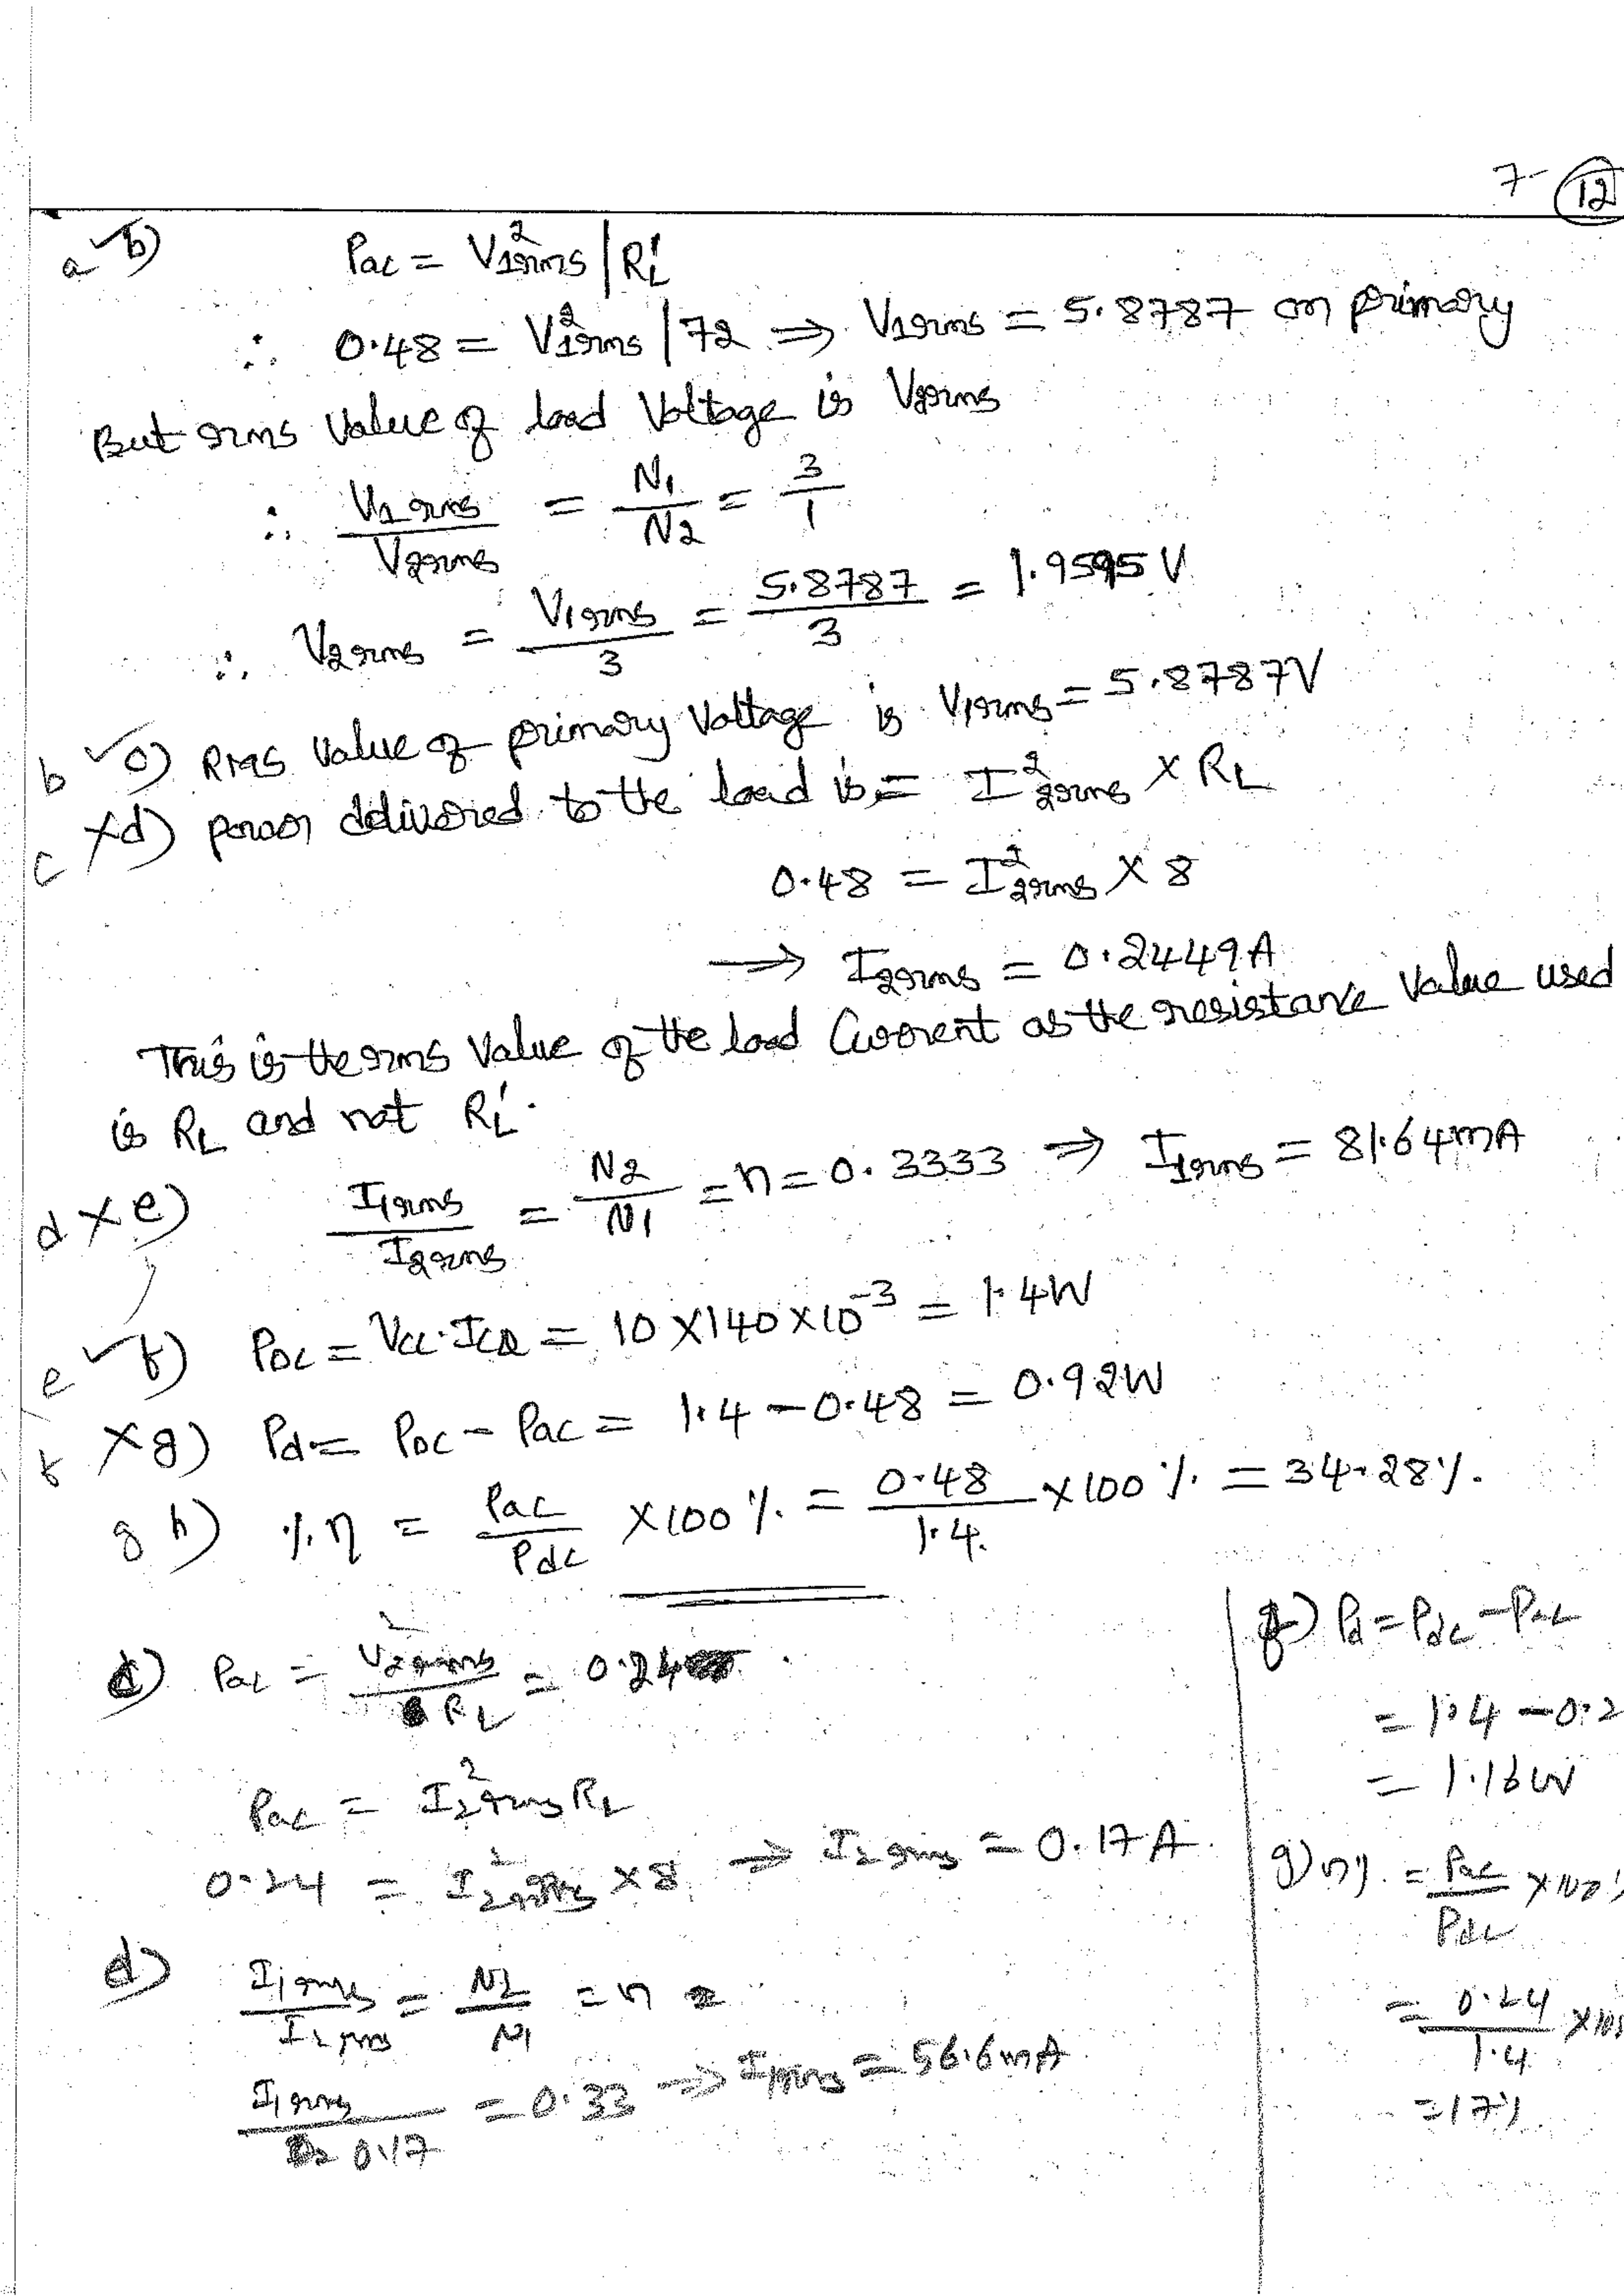 7- 12
a b) Pac = V²1rms | RL'
∴ 0.48 = V²1rms | 72 ⇒ V1rms = 5.8787 on primary
But rms Value of load Voltage is V2rms
∴ V1 rms / V2rms = N1 / N2 = 3 / 1
∴ V2rms = V1rms / 3 = 5.8787 / 3 = 1.9595 V
b c) RMS Value of primary Voltage is V1rms = 5.8787V
c d) power delivered to the load is = I²2rms × RL
0.48 = I²2rms × 8
⇒ I2rms = 0.2449A
This is the rms Value of the load Current as the resistance Value used
is RL and not RL'.
d × e) I1rms / I2rms = N2 / N1 = n = 0.3333 ⇒ I1rms = 81.64mA
e f) PDC = VCC·ICQ = 10 × 140 × 10⁻³ = 1.4W
f × g) Pd = PDC - Pac = 1.4 - 0.48 = 0.92W
g h) %η = Pac / Pdc × 100 % = 0.48 / 1.4 × 100 % = 34.28%.
c) Pac = V²2rms / RL = 0.24
Pac = I²2rms RL
0.24 = I²2rms × 8 ⇒ I2rms = 0.17A.
d) I1rms / I2rms = N2 / N1 = n =
I1rms / 0.17 = 0.33 ⇒ I1rms = 56.6mA
f) Pd = Pdc - Pac
= 1.4 - 0.2
= 1.16W
g) η% = Pac / Pdc × 100%
= 0.24 / 1.4 × 100
= 17%.